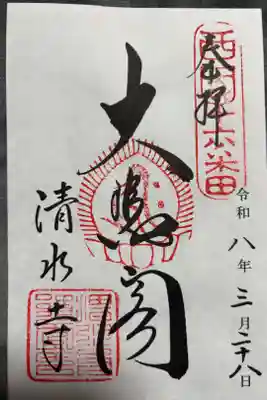 西国十六番
奉拝
令和八年三月二十八日
大悲閣
清水寺